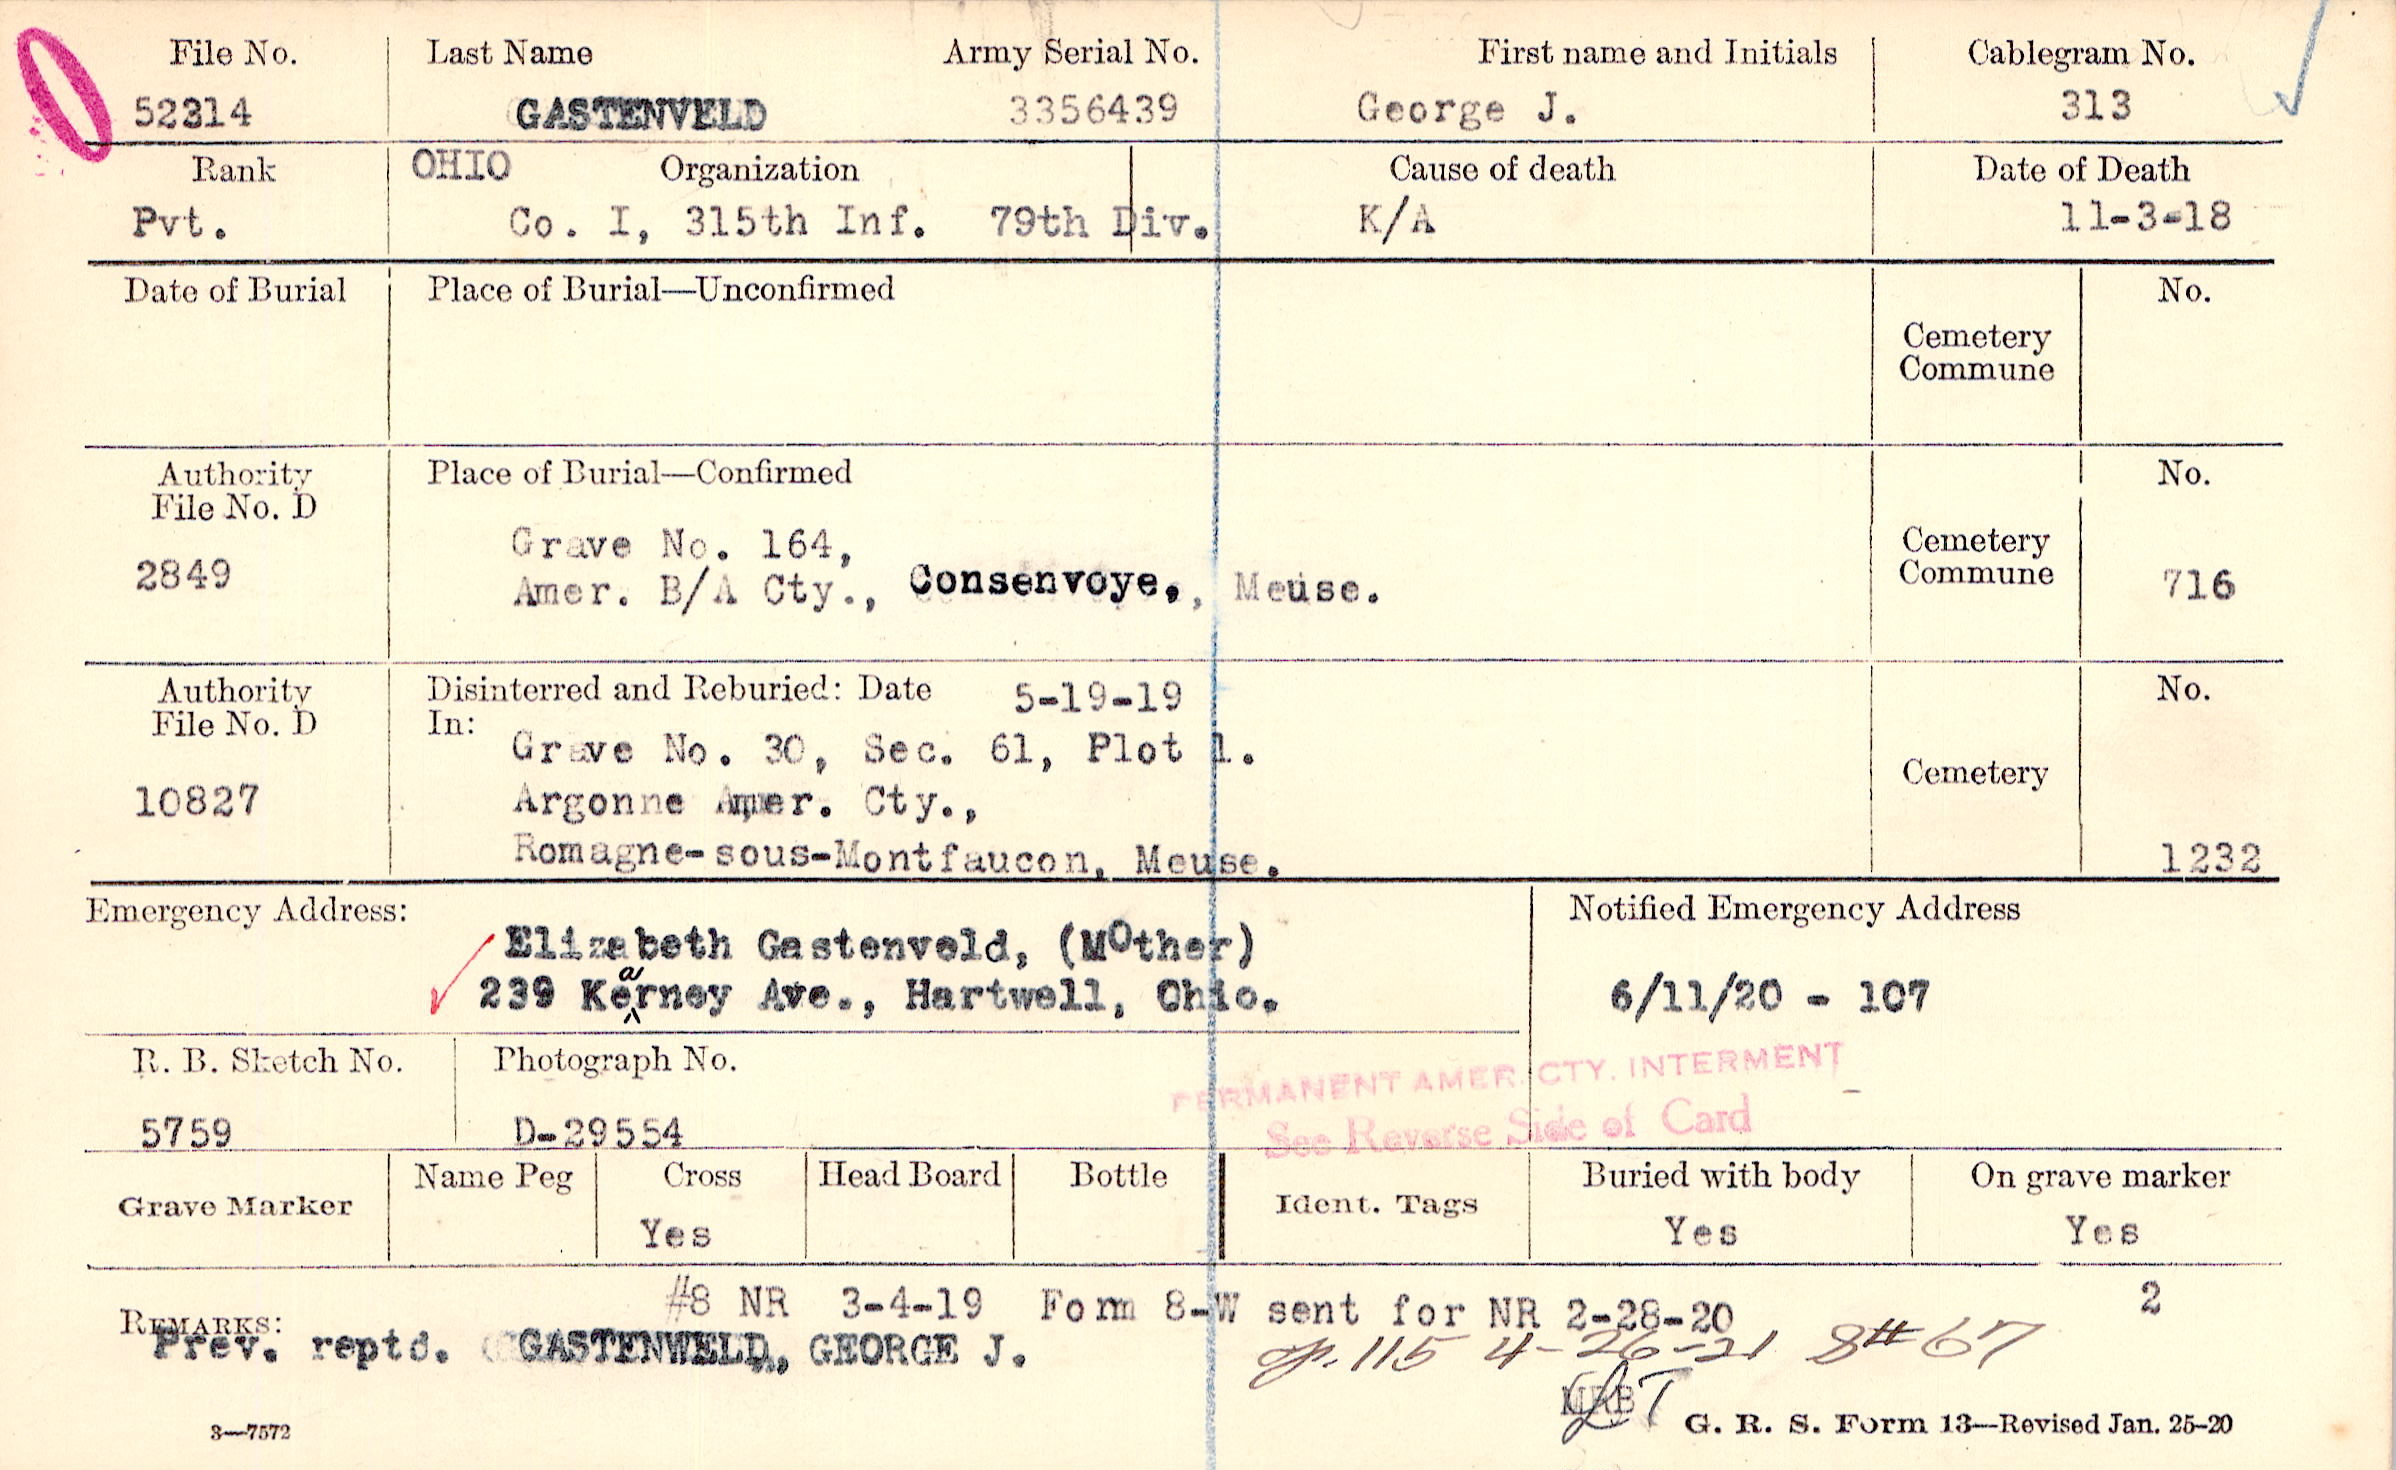 File No. Last Name Army Serial No. First name and Initials Cablegram No.
52314 GASTENVELD 3356439 George J. 313
Rank OHIO Organization Cause of death Date of Death
Pvt. Co. I, 315th Inf. 79th Div. K/A 11-3-18
Date of Burial Place of Burial—Unconfirmed No.
Cemetery
Commune
Authority Place of Burial—Confirmed No.
File No. D
Grave No. 164, Cemetery
2849 Amer. B/A Cty., Consenvoye, , Meuse. Commune 716
Authority Disinterred and Reburied: Date 5-19-19 No.
File No. D In:
Grave No. 30, Sec. 61, Plot 1.
Cemetery
10827 Argonne Amer. Cty.,
Romagne-sous-Montfaucon, Meuse. 1232
Emergency Address: Notified Emergency Address
Elizabeth Gastenveld, (MOther)
a
239 Kerney Ave., Hartwell, Ohio. 6/11/20 - 107
R. B. Sketch No. Photograph No.
PERMANENT AMER. CTY. INTERMENT
5759 D-29554 See Reverse Side of Card
Grave Marker Name Peg Cross Head Board Bottle Ident. Tags Buried with body On grave marker
Yes Yes Yes
#8 NR 3-4-19 Form 8-W sent for NR 2-28-20 2
REMARKS:
Prev. reptd. GASTENWELD, GEORGE J. 115 4-26-21 8#67
MRB
3—7572 G. R. S. Form 13—Revised Jan. 25-20